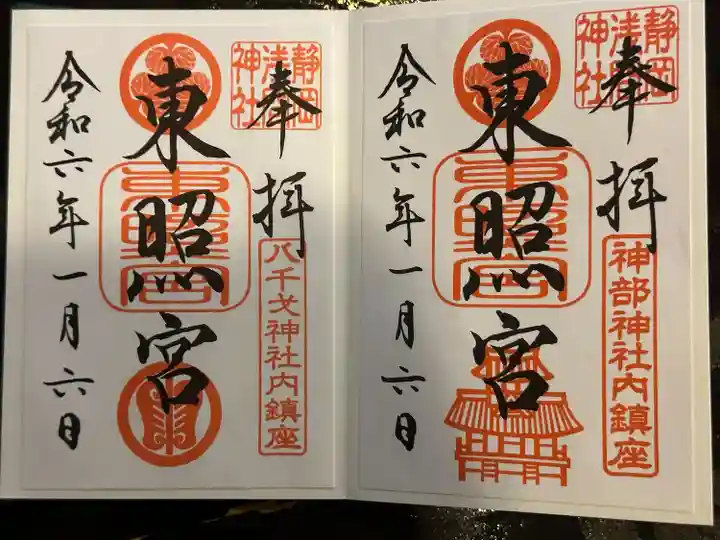 奉拝
静岡浅間神社
八千戈神社内鎮座
東照宮
東照宮
令和六年一月六日
奉拝
静岡浅間神社
神部神社内鎮座
東照宮
東照宮
令和六年一月六日